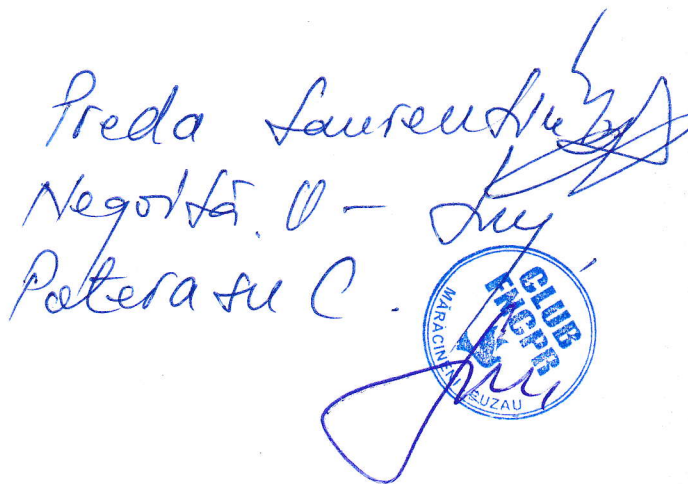 Preda Laurentiu
Negoiță. O -
Paterasu C.
CLUB
FNCPR
MĂRĂCINENI BUZAU